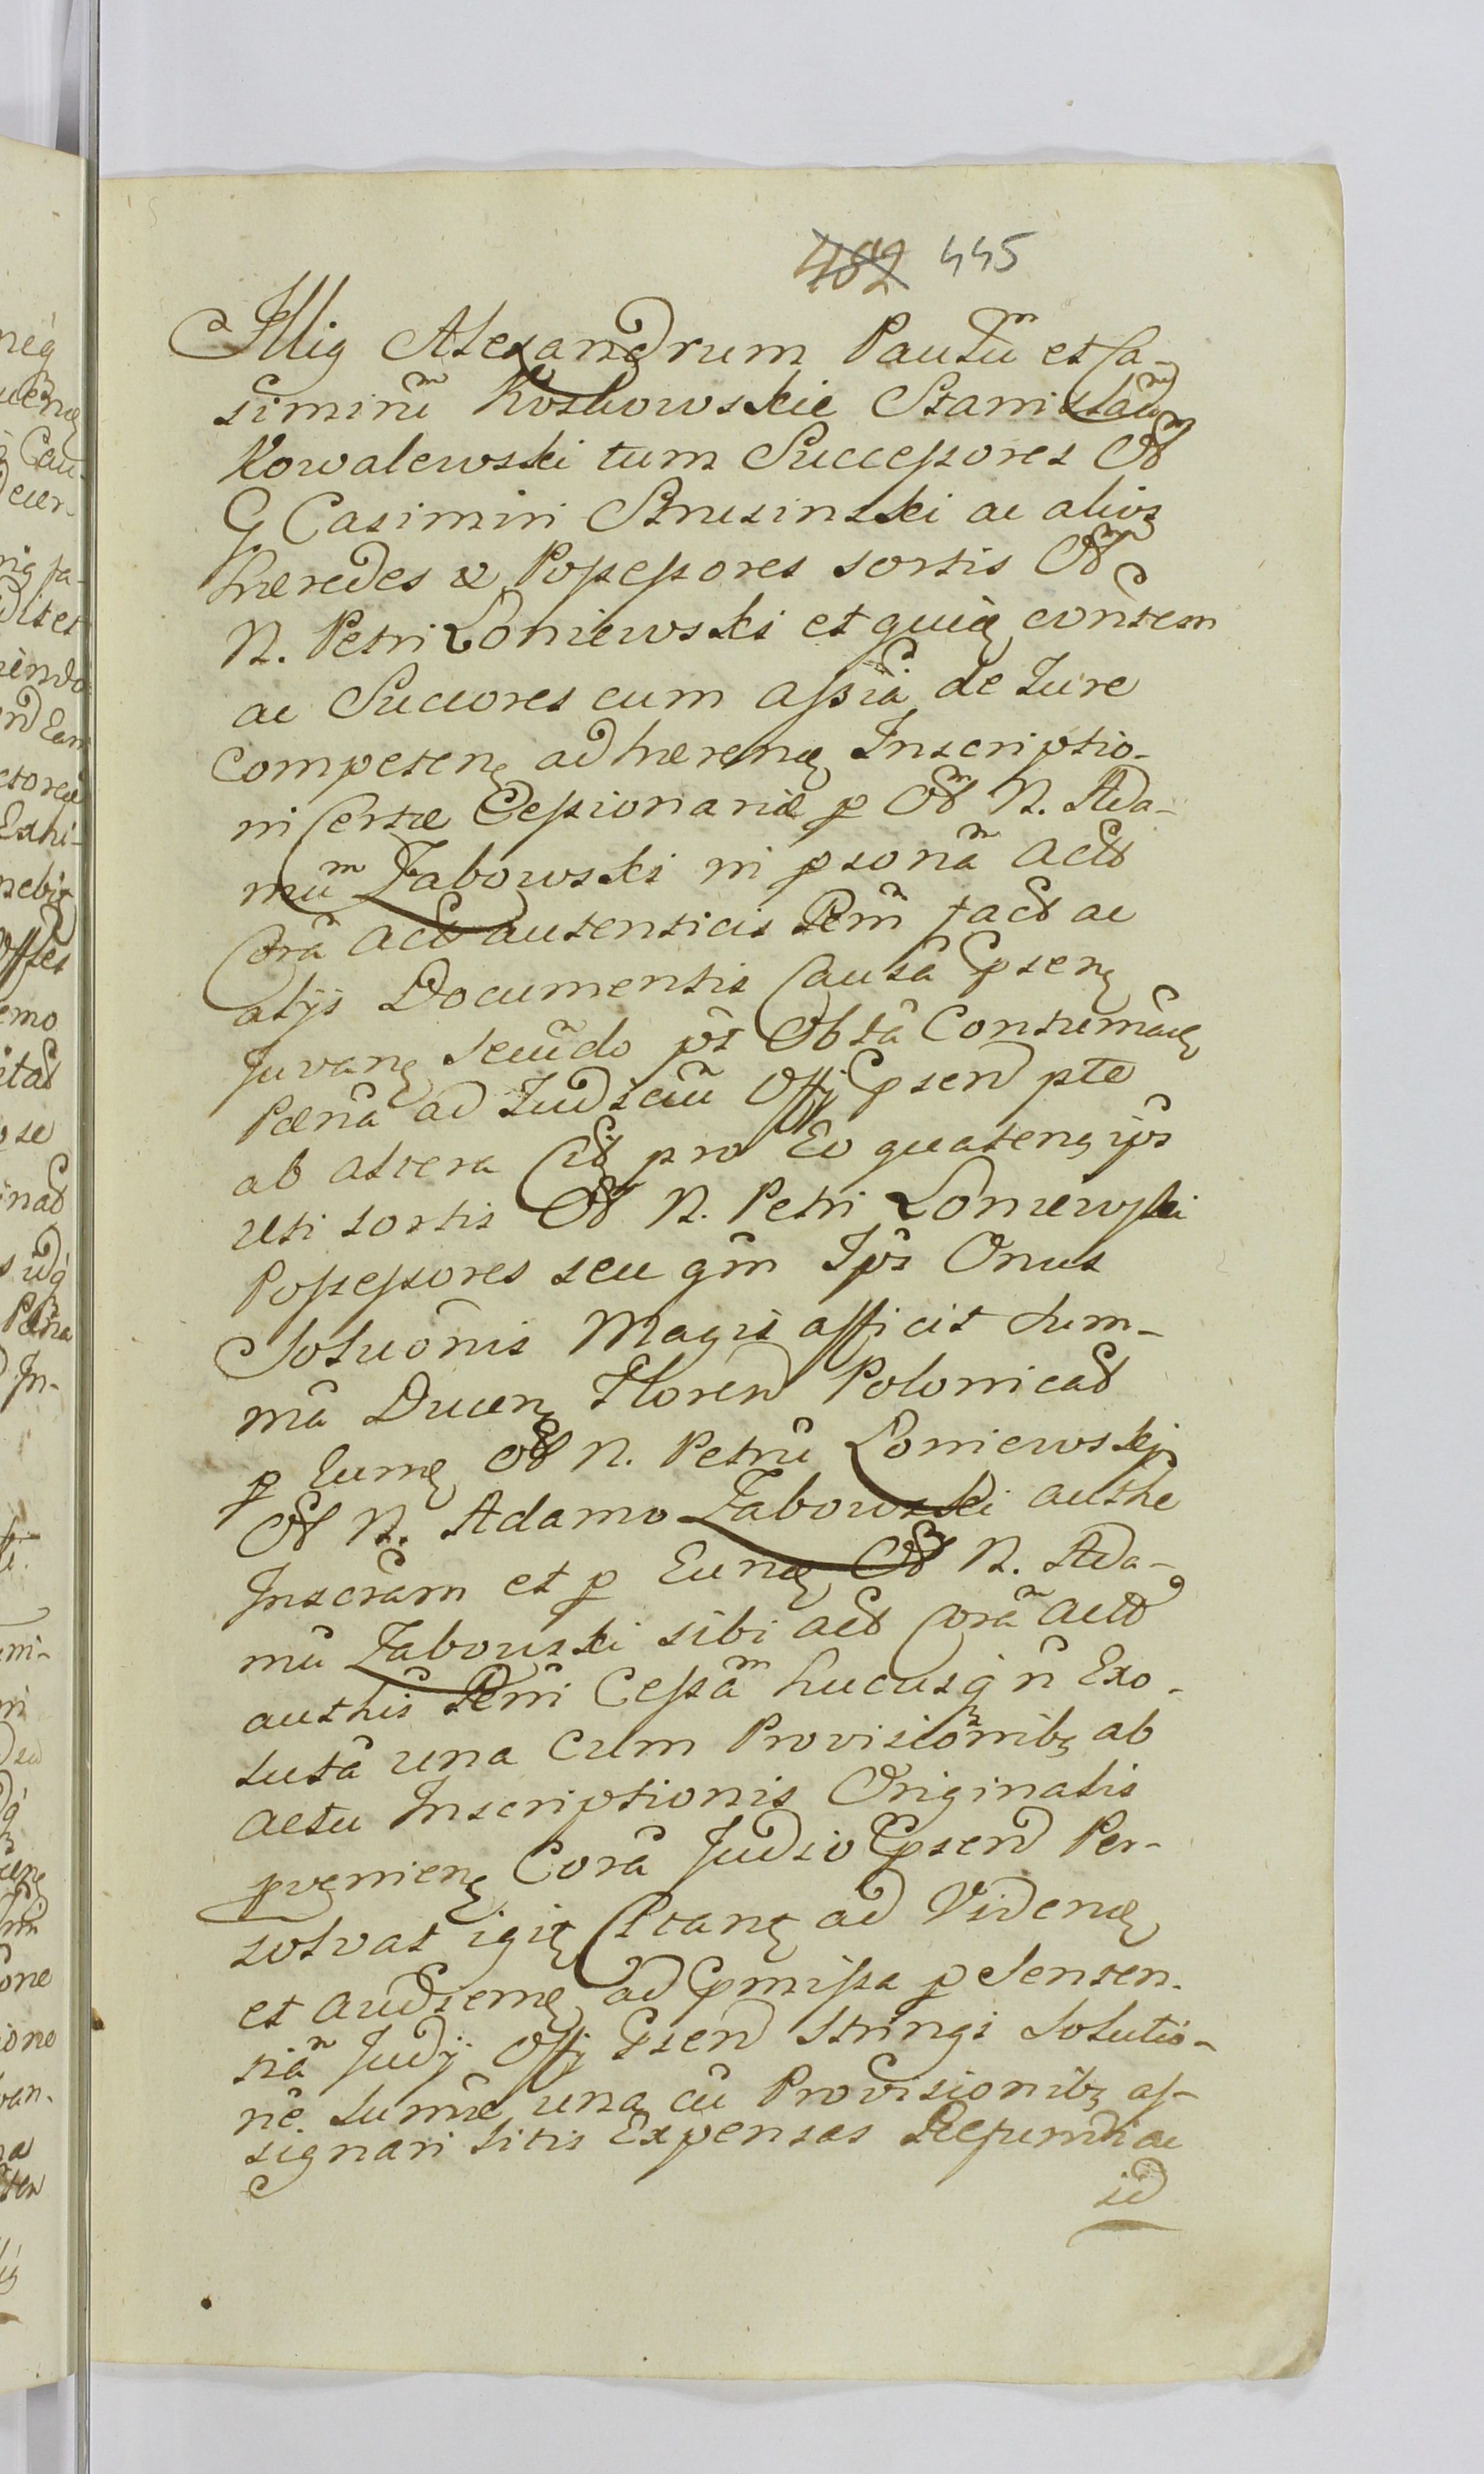 482 445
Illig Alexandrum Paulũ et Ca-
simirũ Koskowskie Stanislaũ
Kowalewski tum Successores Ol̃
G Casimiri Brusinski ac alios
hæredes & Possessores sortis Ol̃
N. Petri Łoniewski et quid̃ cõntem
ac Succores cum assia de Jure
competen adhæren Inscriptio-
ni Certæ Cessionariæ p Ol̃ N. Ada-
mũ Zabowski in psonã Act
Corã Act autenticis Tem̃ fact ac
alijs Documentis Causã Psen
Juvan secũdo põs Obtã Contumac
Pænã ad Judiciũ Offi Psen pte
ab altera Cit pro Eo quaten ips
uti sortis Ol̃ N. Petri Łoniewski
Possessores seu qm̃ Ips Onus
Soluõnis Magis afficit Sum-
mã Ducen Floren Polonical
p Eund Ol̃ N. Petrũ Łoniewski
Ol̃ N. Adamo Zabowski authe
Inscrãm et p Eund Ol̃ N. Ada-
mũ Zabowski sibi act Corã act
authis Tem̃ Cessã hucusq ñ Exo-
lutã una cum Provisionib ab
actu Inscriptionis Originalis
pvenien Corã Judio Psen Per-
solvat igit Citan ad Viden
et audien ad Pmissa p Senten-
tiã Judij Offi Psen Stringi Solutio-
nẽ Sum̃æ una cũ Provisionib as-
signari litis Expensas Refundi ac
id